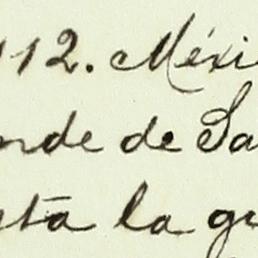 112. Méxi
nde de Sa
sta la gu